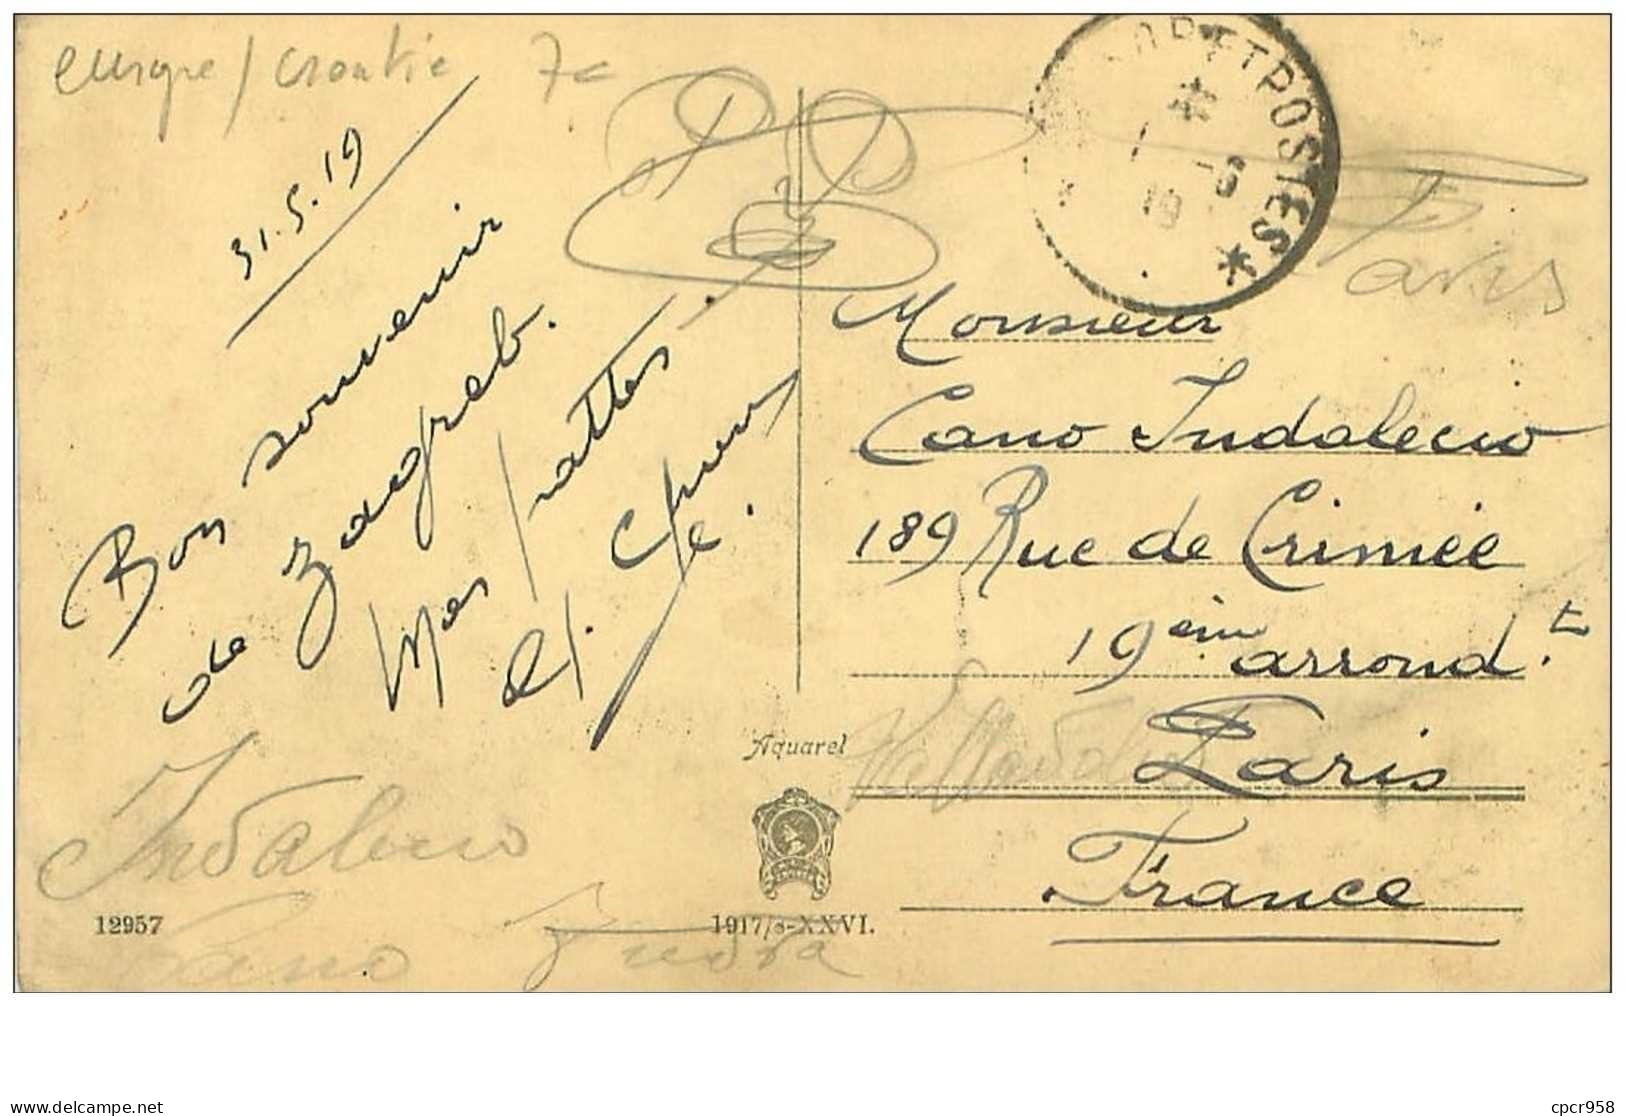 Europe / Croatie 7c
31.5.19
Bon souvenir
de Zagreb.
TRESOR ET POSTES *
1 -6
19
Paris
Monsieur
Cano Indalecio
189 Rue de Crimée
19ème arrond.t
Paris
France
Aquarel
Indalecio
Cano
12957
1917/8-XXVI.
cpcr958